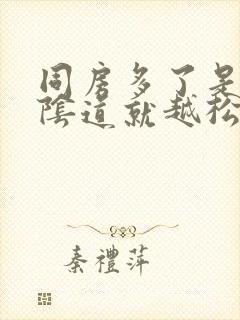 同房多了是
陰道就越松
秦禮萍